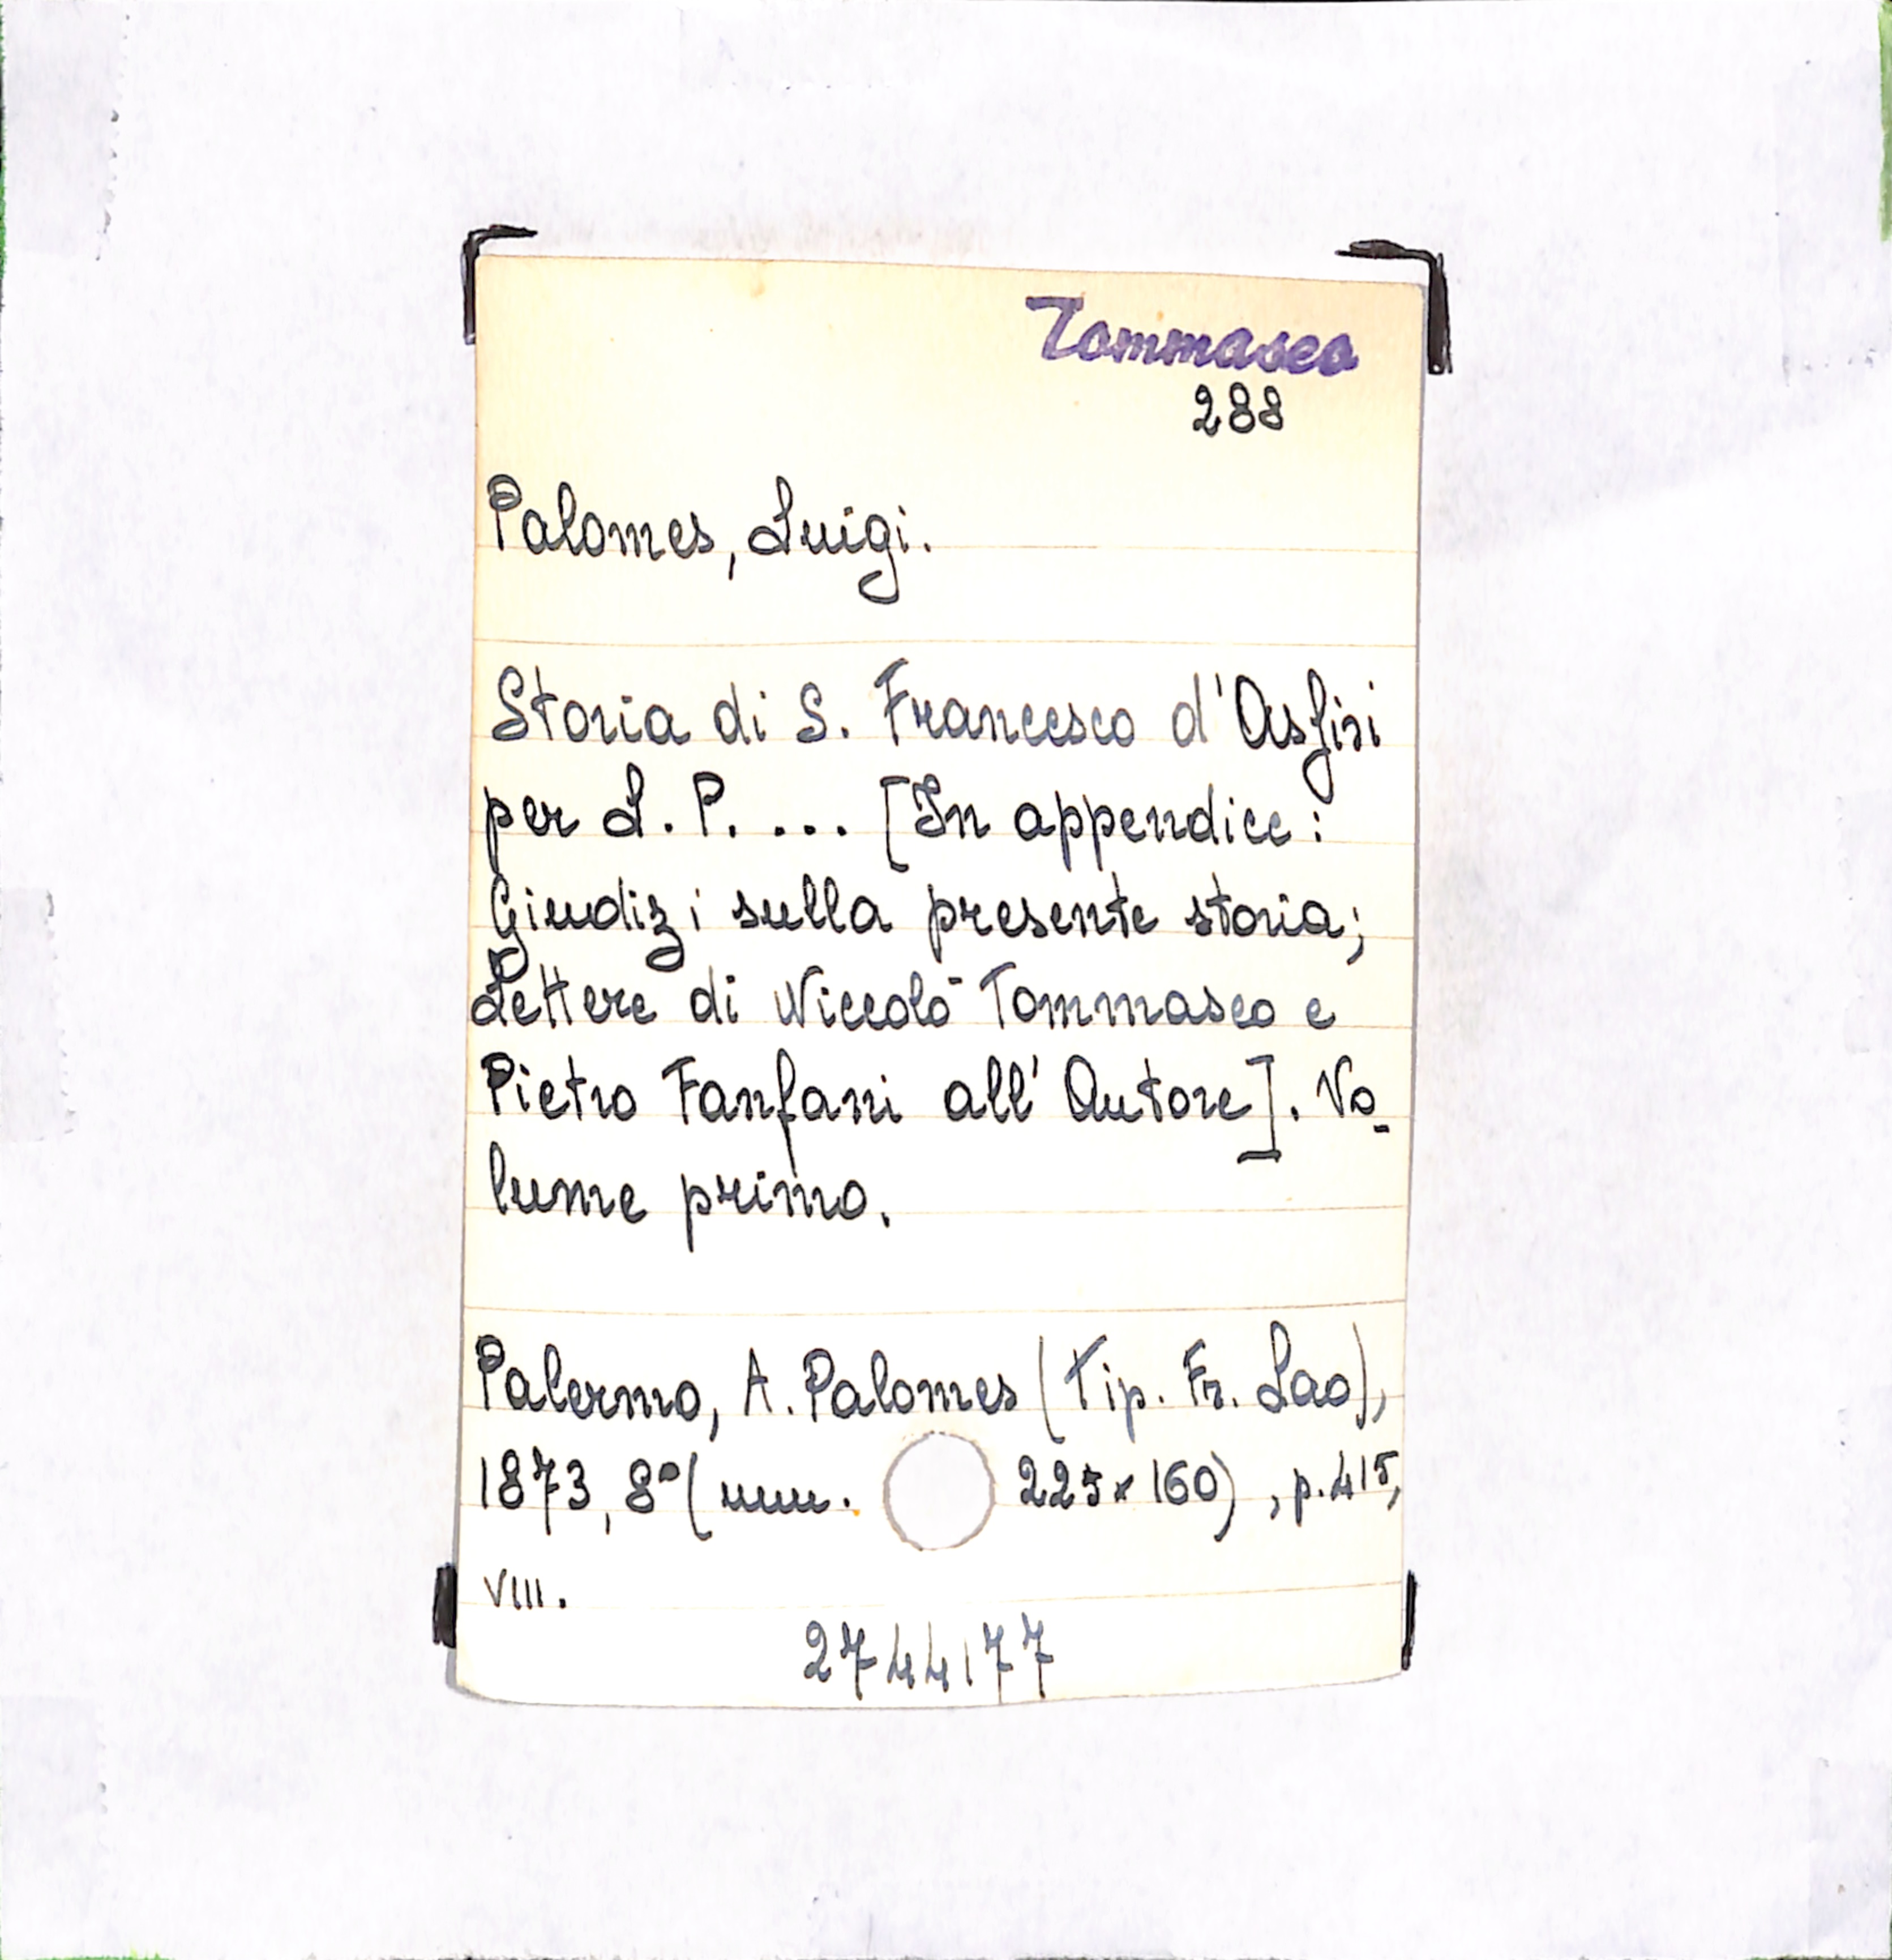 Tommaseo
288
Palomes, Luigi.
Storia di S. Francesco d'Assisi
per L. P. ... [In appendice:
Giudizi sulla presente storia;
Lettere di Niccolò Tommaseo e
Pietro Fanfani all'Autore]. Vo-
lume primo.
Palermo, A. Palomes (Tip. Fr. Lao),
1873, 8° (mm. 225x160), p. 415,
VIII.
2744177